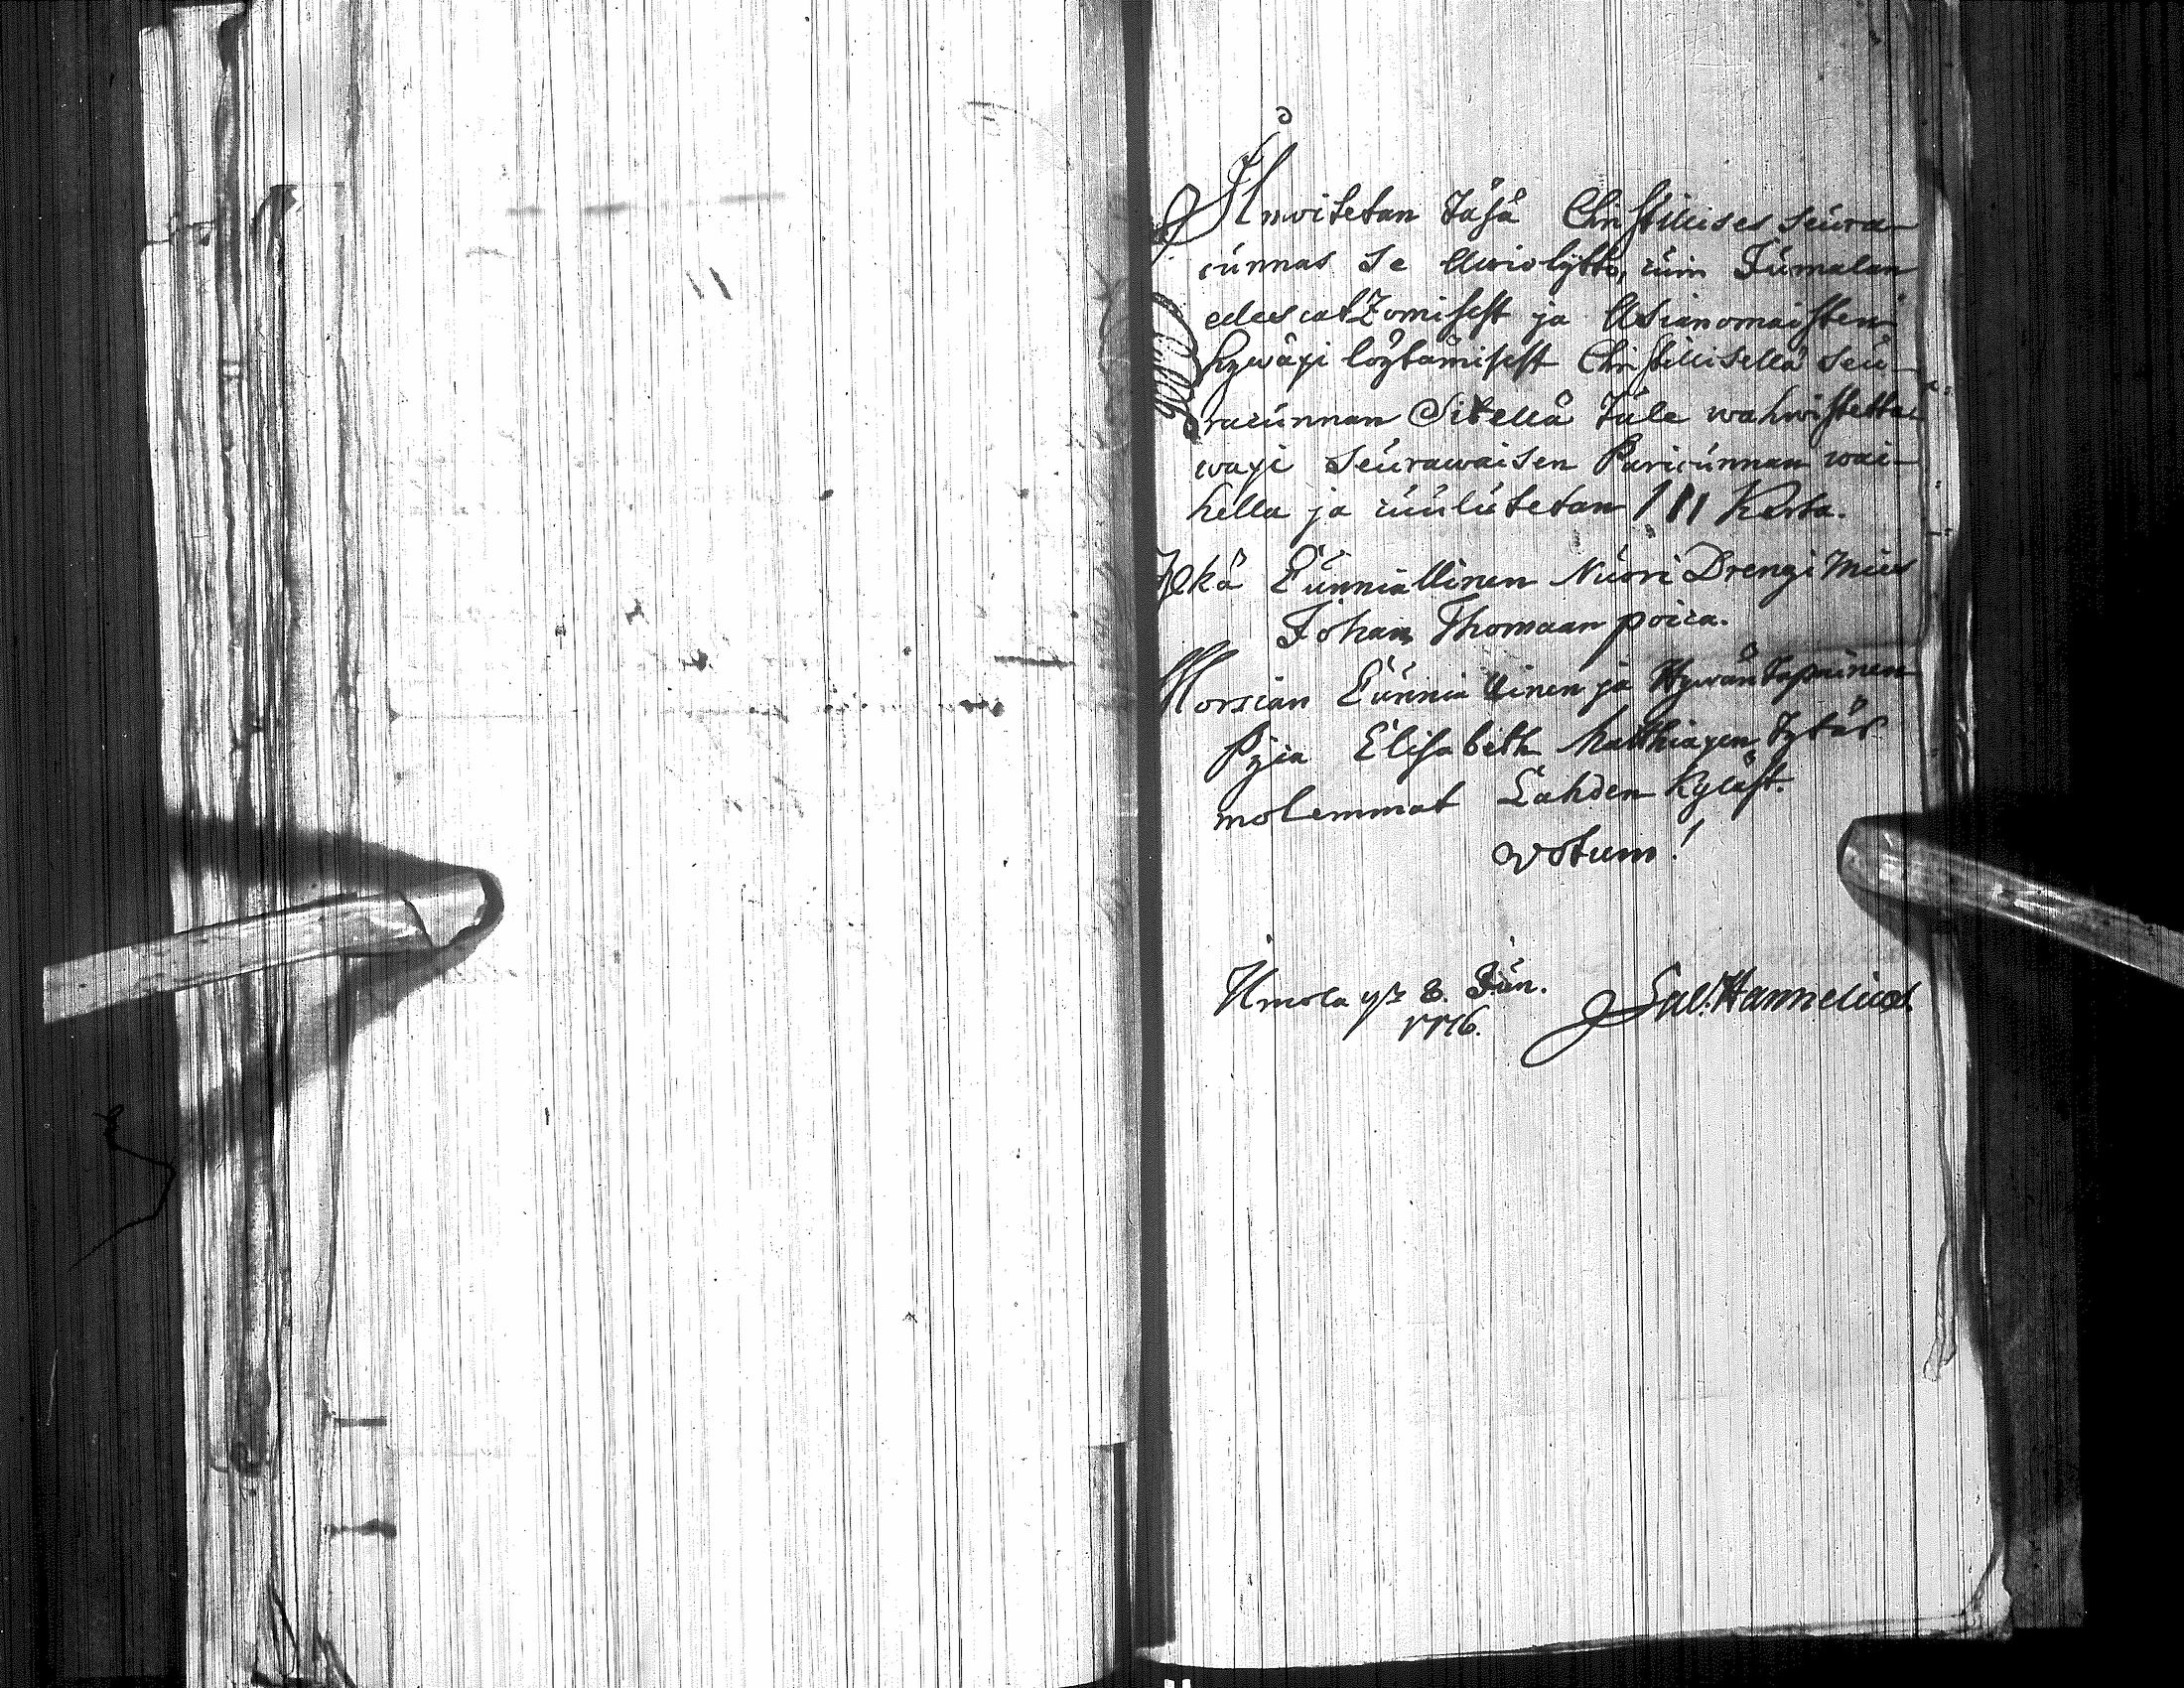 Ilmoitetan täsä Christillises seura-
cunnas se Awiolijtto, cuin Jumalan
edescatzomisest ja Asianomaisten
hywäxi löytämisest Christillisellä seu-
racunnan Sitellä tule wahwistetta-
waxi seurawaisen Pariicunnan wai-
hella ja cuulutetan III Kerta.
Ylkä Cunniallinen Nuori Drengi Mies
Johan Thomaan poica.
Morsian Cunniallinen ja Hywäntapainen
Pijca Elisabeth Matthiaxen Tytär
molemmat Lahden Kyläst.
Votum!
Ilmola 8. Jun.
1776.
Sal. Hannelius.